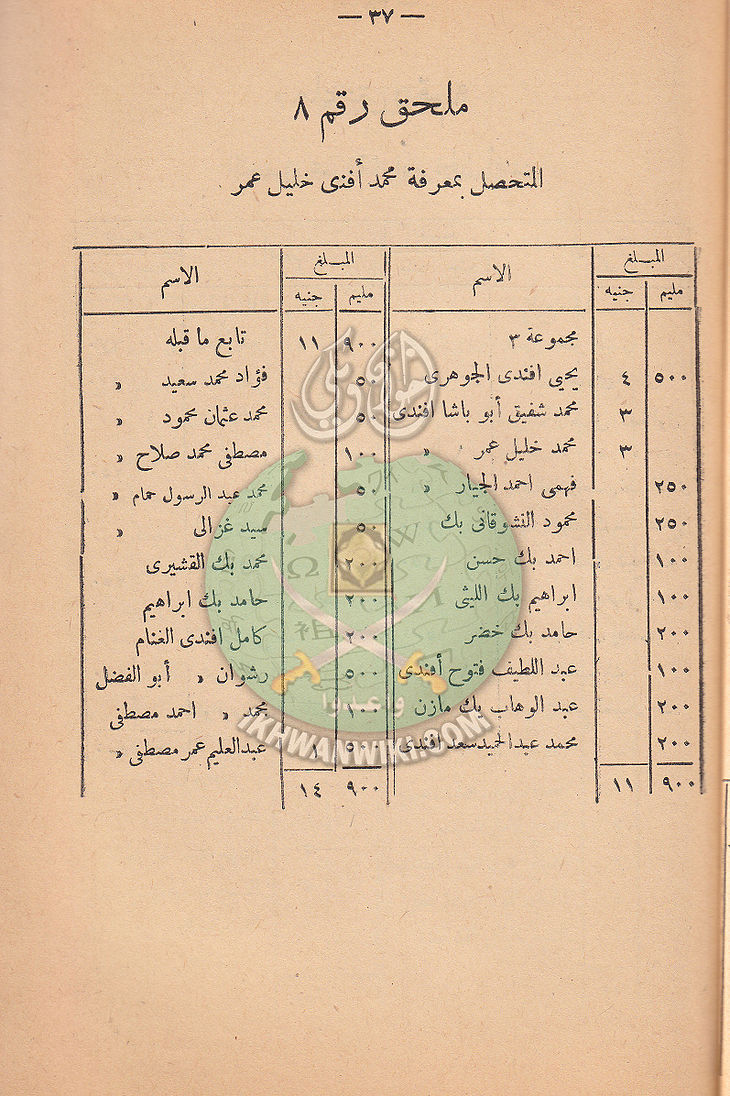 — ٣٧ —
ملحق رقم ٨
المتحصل بمعرفة محمد أفندى خليل عمر
المبلغ الاسم المبلغ الاسم
مليم جنيه مليم جنيه
مجموعة ٣
٥٠٠ ٤ يحيى افندى الجوهرى
٣ محمد شفيق أبو باشا افندى
٣ محمد خليل عمر »
٢٥٠ فهمى احمد الجيار »
٢٥٠ محمود النشوقاتى بك
١٠٠ احمد بك حسن
١٠٠ ابراهيم بك الليثى
٢٠٠ حامد بك خضر
١٠٠ عبد اللطيف فتوح أفندى
٢٠٠ عبد الوهاب بك مازن
٢٠٠ محمد عبدالحميد سعد افندى
٩٠٠ ١١
٩٠٠ ١١ تابع ما قبله
٥٠ فؤاد محمد سعيد »
٥٠ محمد عثمان محمود »
١٠٠ مصطفى محمد صلاح »
٥٠ محمد عبد الرسول حمام »
٥٠ سيد غزالى »
٢٠٠ محمد بك القشيرى
٢٠٠ حامد بك ابراهيم
٢٠٠ كامل افندى الغنام
٥٠٠ رشوان » أبو الفضل
١٠٠ محمد » احمد مصطفى
٥٠٠ ١ عبدالعليم عمر مصطفى »
٩٠٠ ١٤
إخوان ويكي
وأعدوا
IKHWANWIKI.COM